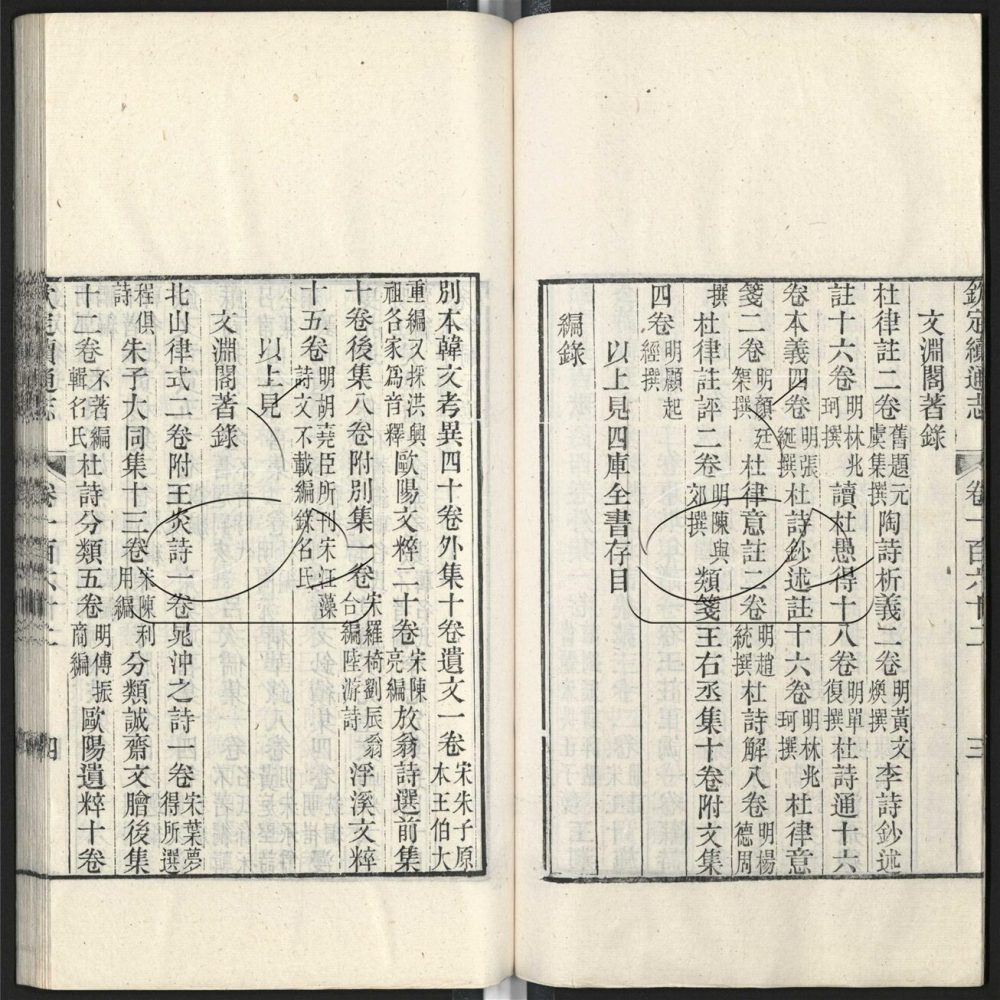 欽定續通志 卷一百六十二 三
文淵閣著錄
杜律註二卷舊題元虞集撰陶詩析義二卷明黃文煥撰李詩鈔述
註十六卷明林兆珂撰讀杜愚得十八卷明單復撰杜詩通十六
卷本義四卷明張綖撰杜詩鈔述註十六卷明林兆珂撰杜律意
箋二卷明顏廷榘撰杜律意註二卷明趙統撰杜詩解八卷明楊德周
撰杜律註評二卷明陳與郊撰類箋王右丞集十卷附文集
四卷明顧起經撰
以上見四庫全書存目
編錄
別本韓文考異四十卷外集十卷遺文一卷宋朱子原本王伯大
重編又採洪興祖各家為音釋歐陽文粹二十卷宋陳亮編放翁詩選前集
十卷後集八卷附別集一卷宋羅椅劉辰翁台編陸游詩浮溪文粹
十五卷明胡堯臣所刊宋汪藻詩文不載編錄名氏
以上見
文淵閣著錄
北山律式二卷附王炎詩一卷晁沖之詩一卷宋葉夢得所選
程俱詩朱子大同集十三卷宋陳利用編分類誠齋文膾後集
十二卷不著編輯名氏杜詩分類五卷明傅振商編歐陽遺粹十卷
欽定續通志 卷一百六十二 四